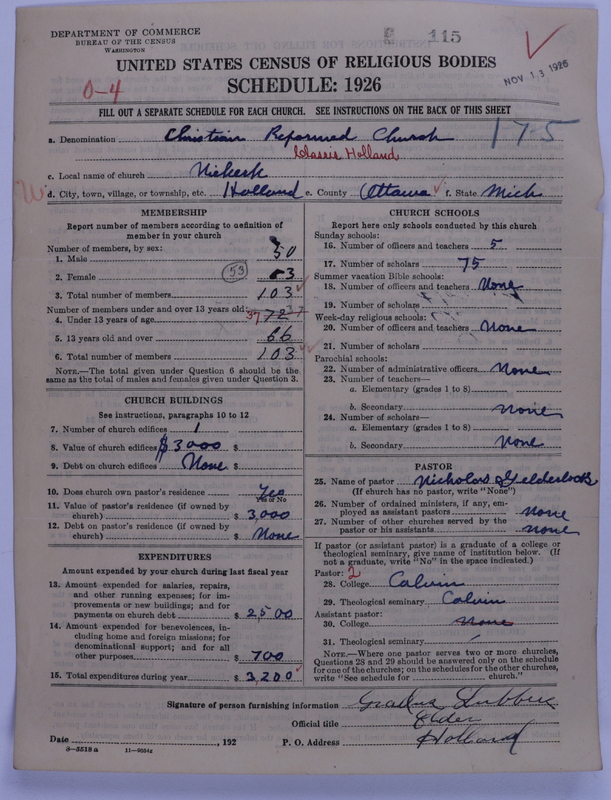 DEPARTMENT OF COMMERCE
BUREAU OF THE CENSUS
WASHINGTON
115
NOV 13 1926
UNITED STATES CENSUS OF RELIGIOUS BODIES
SCHEDULE: 1926
0-4
FILL OUT A SEPARATE SCHEDULE FOR EACH CHURCH. SEE INSTRUCTIONS ON THE BACK OF THIS SHEET
a. Denomination Christian Reformed Church 175
Classis Holland
c. Local name of church Nickerk
d. City, town, village, or township, etc. Holland e. County Ottawa f. State Mich
MEMBERSHIP
Report number of members according to definition of
member in your church
Number of members, by sex:
1. Male 50
2. Female 53
3. Total number of members 103
Number of members under and over 13 years old:
4. Under 13 years of age 37
5. 13 years old and over 66
6. Total number of members 103
NOTE.—The total given under Question 6 should be the
same as the total of males and females given under Question 3.
CHURCH BUILDINGS
See instructions, paragraphs 10 to 12
7. Number of church edifices 1
8. Value of church edifices $3000 $
9. Debt on church edifices None $
10. Does church own pastor's residence Yes
Yes or No
11. Value of pastor's residence (if owned by
church) $ 3,000
12. Debt on pastor's residence (if owned by
church) $ None
EXPENDITURES
Amount expended by your church during last fiscal year
13. Amount expended for salaries, repairs,
and other running expenses; for im-
provements or new buildings; and for
payments on church debt $ 2,500
14. Amount expended for benevolences, in-
cluding home and foreign missions; for
denominational support; and for all
other purposes $ 700
15. Total expenditures during year $ 3,200
CHURCH SCHOOLS
Report here only schools conducted by this church
Sunday schools:
16. Number of officers and teachers 5
17. Number of scholars 75
Summer vacation Bible schools:
18. Number of officers and teachers None
19. Number of scholars
Week-day religious schools:
20. Number of officers and teachers None
21. Number of scholars
Parochial schools:
22. Number of administrative officers None
23. Number of teachers—
a. Elementary (grades 1 to 8)
b. Secondary None
24. Number of scholars—
a. Elementary (grades 1 to 8)
b. Secondary None
PASTOR
25. Name of pastor Nicholas Gelderloos
(If church has no pastor, write "None")
26. Number of ordained ministers, if any, em-
ployed as assistant pastors None
27. Number of other churches served by the
pastor or his assistants None
If pastor (or assistant pastor) is a graduate of a college or
theological seminary, give name of institution below. (If
not a graduate, write "No" in the space indicated.)
Pastor: 2
28. College Calvin
29. Theological seminary Calvin
Assistant pastor:
30. College None
31. Theological seminary
NOTE.—Where one pastor serves two or more churches,
Questions 28 and 29 should be answered only on the schedule
for one of the churches; on the schedules for the other churches,
write "See schedule for church."
Signature of person furnishing information Gradus Lubbers
Official title Elder
Date , 192 P. O. Address Holland
8-5518 a 11-9554z